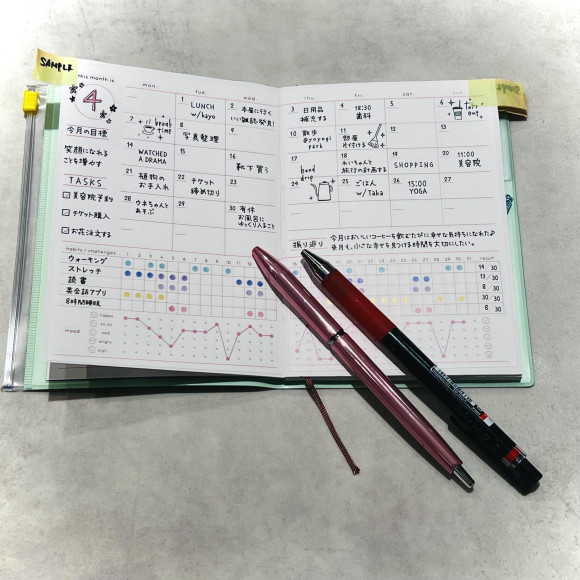 SAMPLE
this month is
4
今月の目標
笑顔になれる
ことを増やす
TASKS
美容院予約
チケット購入
お花注文する
mon.
tue
wed.
thu
fri
sat.
sun.
1
LUNCH
w/kayo
2
本屋に行く
いい雑誌発見!
3
日用品
補充する
4
18:30
歯科
5
6
7
break
time
8
写真整理
9
10
散歩
@yoyogi
park
11
部屋
片付ける
12
13
14
WATCHED
A DRAMA
15
16
靴下買う
17
hand
drip
18
れいちゃんと
旅行の計画する
19
SHOPPING
20
11:00
美容院
21
植物の
お手入れ
22
チケット
締め切り
23
24
25
ごはん
w/Taka
26
15:00
YOGA
27
28
ウキちゃんと
あそぶ
29
30
有休
お風呂に
ゆっくり入ること
振り返り
今月はおいしいコーヒーを飲むたびに幸せな気持ちになれた♪
来月も、小さな幸せを見つける時間を大切にしたい。
habits / challenges
result
ウォーキング
14/30
ストレッチ
13/30
読書
8/30
英会話アプリ
8/30
8時間睡眠
mood
happy
so so
sad
angry
sigh